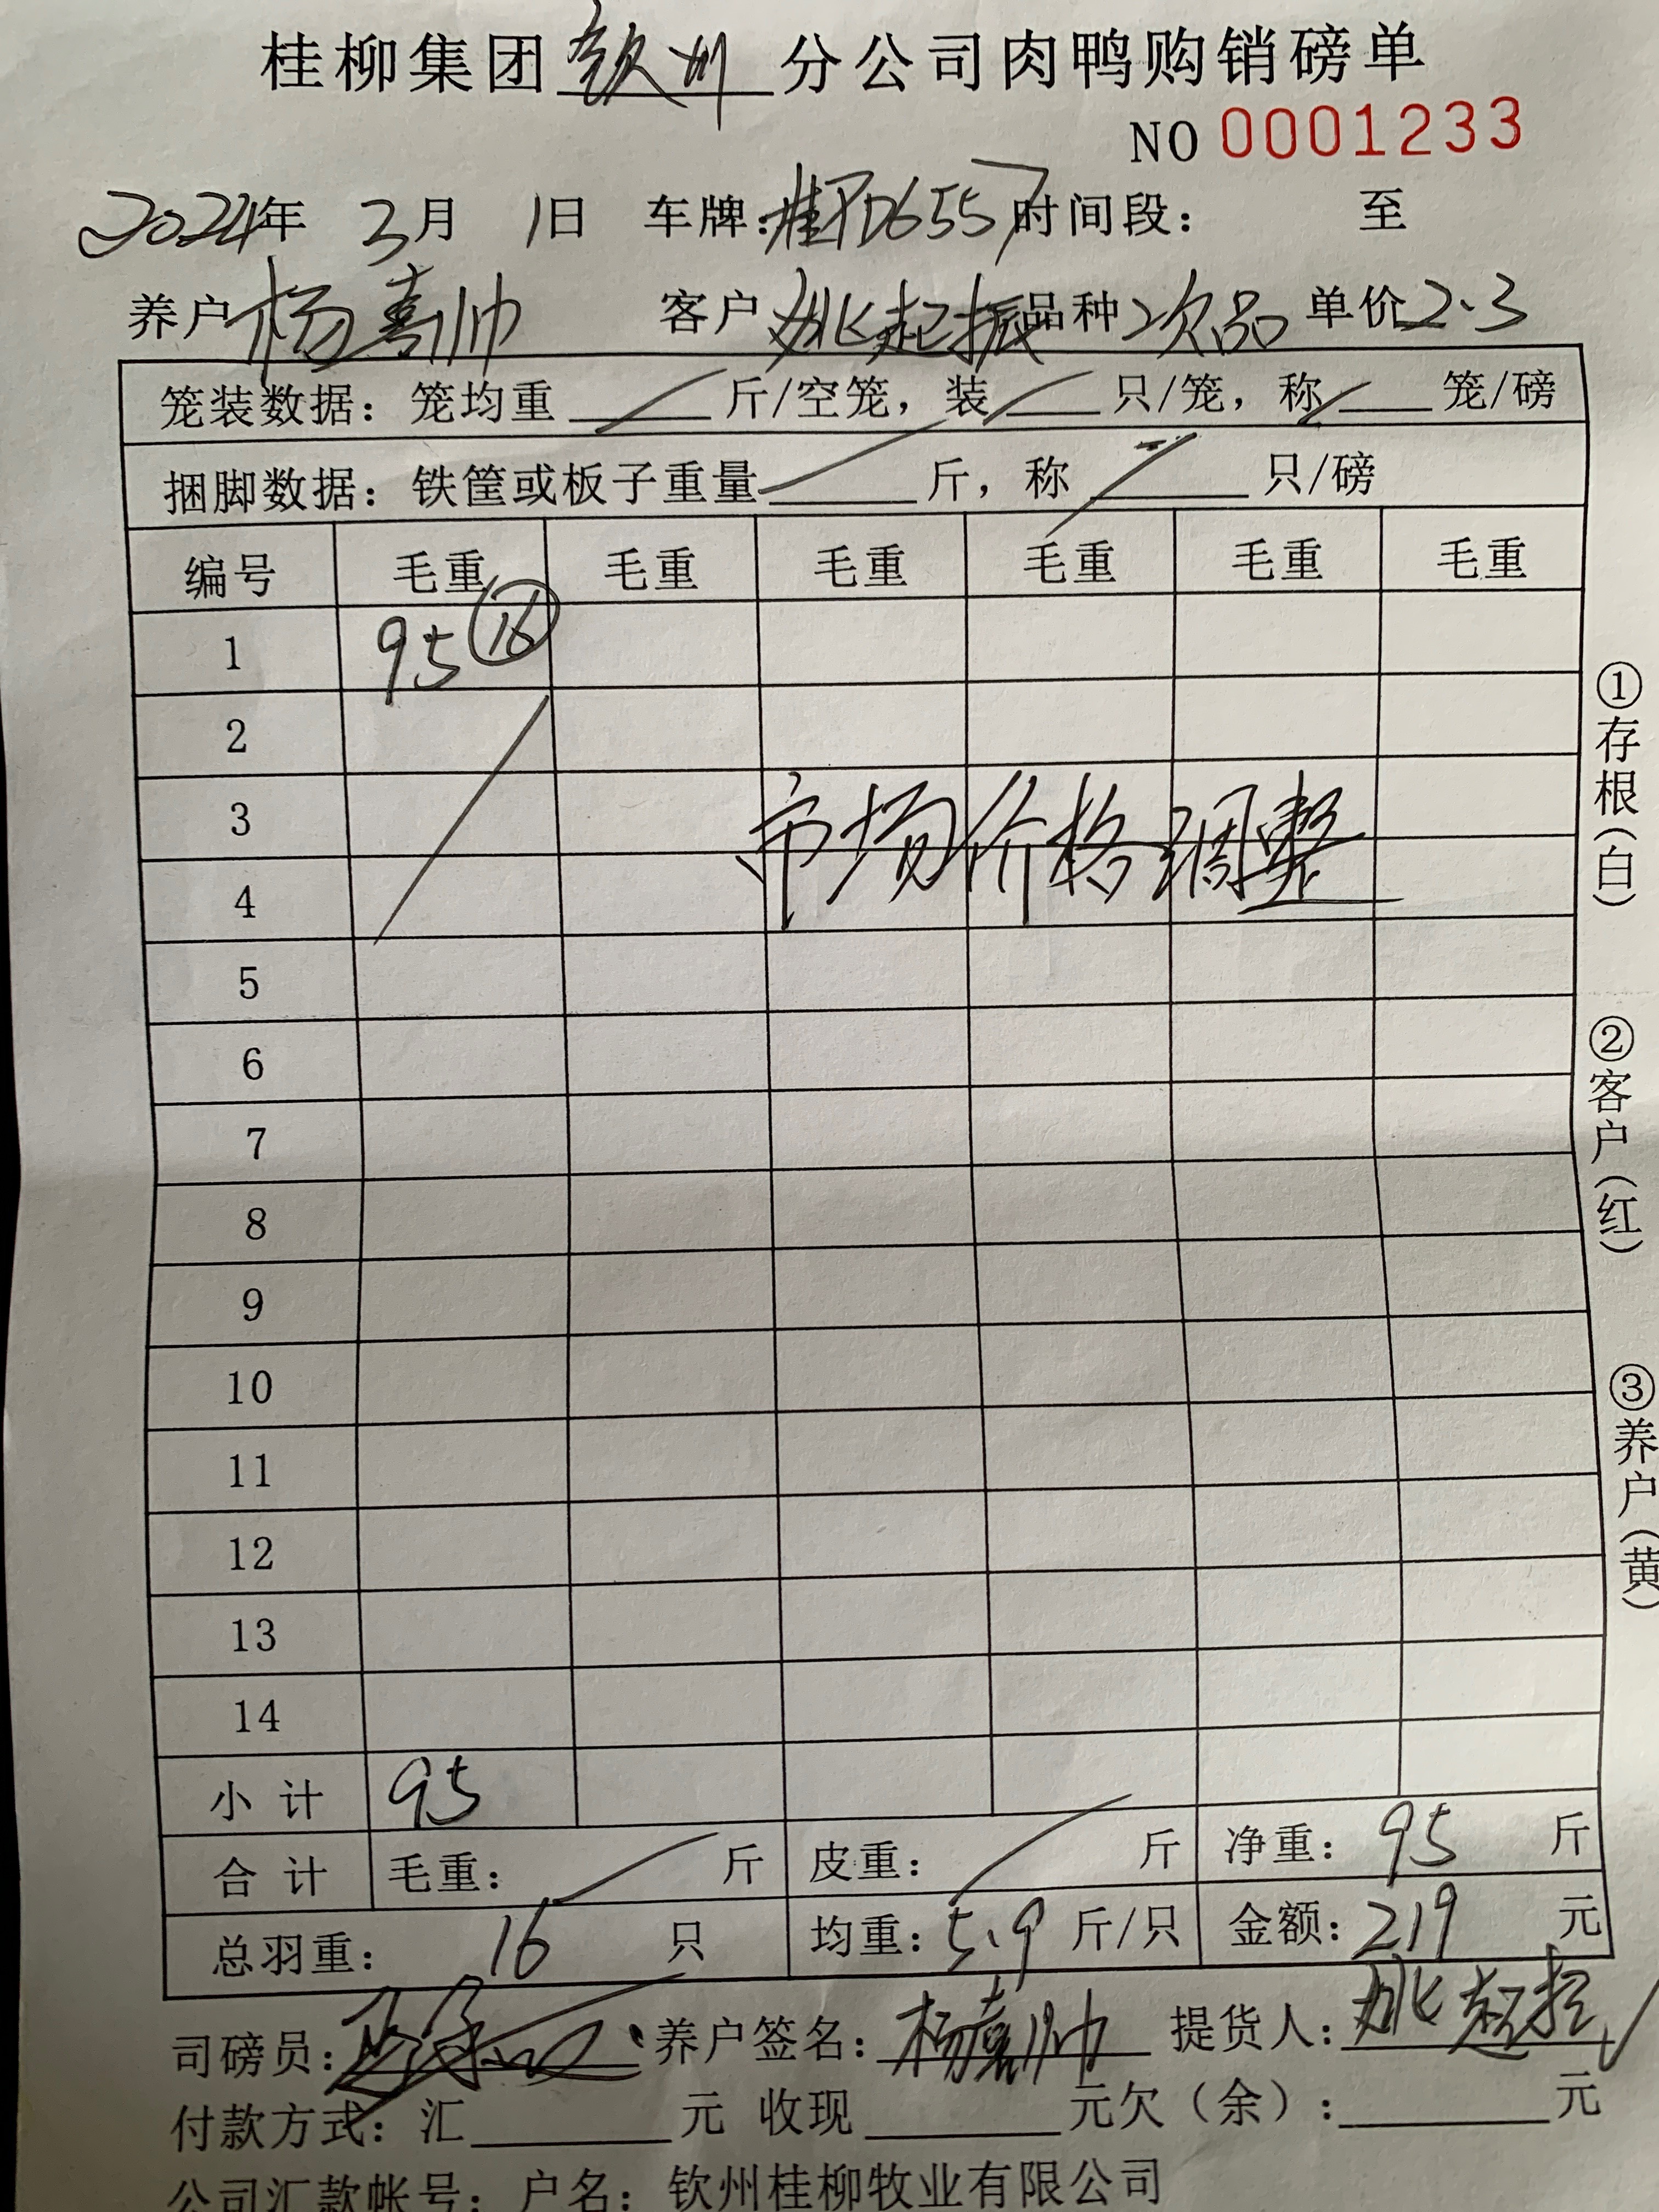 桂柳集团钦州分公司肉鸭购销磅单
NO 0001233
2024年 3月 1日 车牌:桂PD6557 时间段: 至
养户 杨嘉帅 客户 姚起振 品种 次品 单价 2.3
笼装数据: 笼均重 斤/空笼, 装 只/笼, 称 笼/磅
捆脚数据: 铁筐或板子重量 斤, 称 只/磅
编号 毛重 毛重 毛重 毛重 毛重 毛重
1 95 16
2
3
市场价格调整
4
5
6
7
8
9
10
11
12
13
14
小 计 95
合 计 毛重: 斤 皮重: 斤 净重: 95 斤
总羽重: 16 只 均重: 5.9 斤/只 金额: 219 元
司磅员: 养户签名: 杨嘉帅 提货人: 姚起振
付款方式: 汇 元 收现 元欠(余): 元
公司汇款帐号: 户名: 钦州桂柳牧业有限公司
①存根(白)
②客户(红)
③养户(黄)